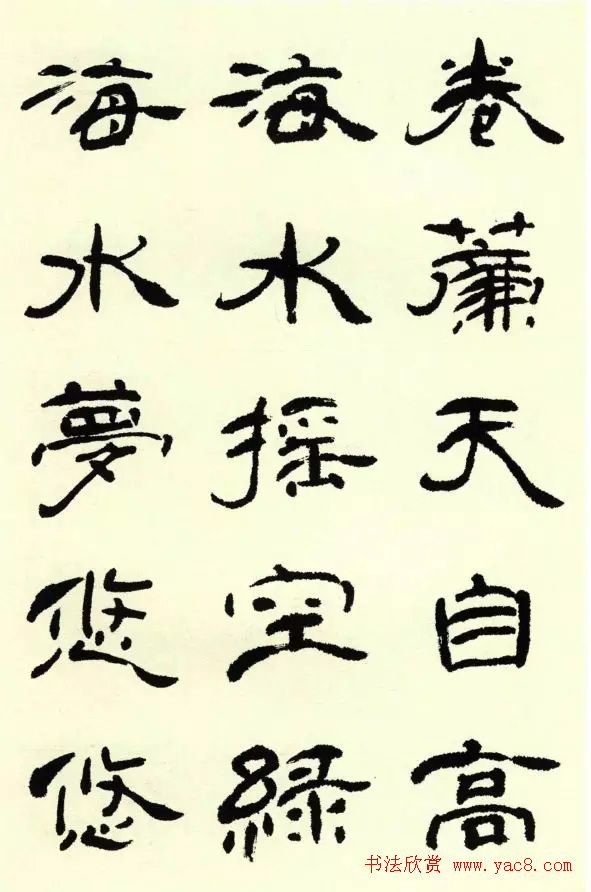 卷簾天自高
海水摇空綠
海水夢悠悠
书法欣赏 www.yac8.com